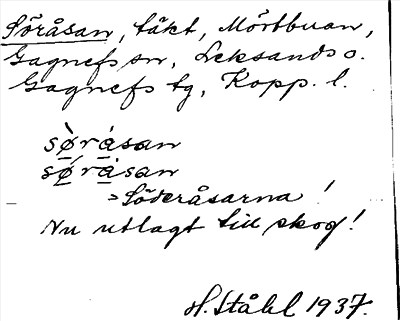 Söråsan, täkt, Mörtbuan,
Gagnefs sn, Leksands o.
Gagnefs tg, Kopp. l.
sø̀råsan
sǿråsan
>Söderåsarna!
Nu utlagt till skog!
H. Ståhl 1937.